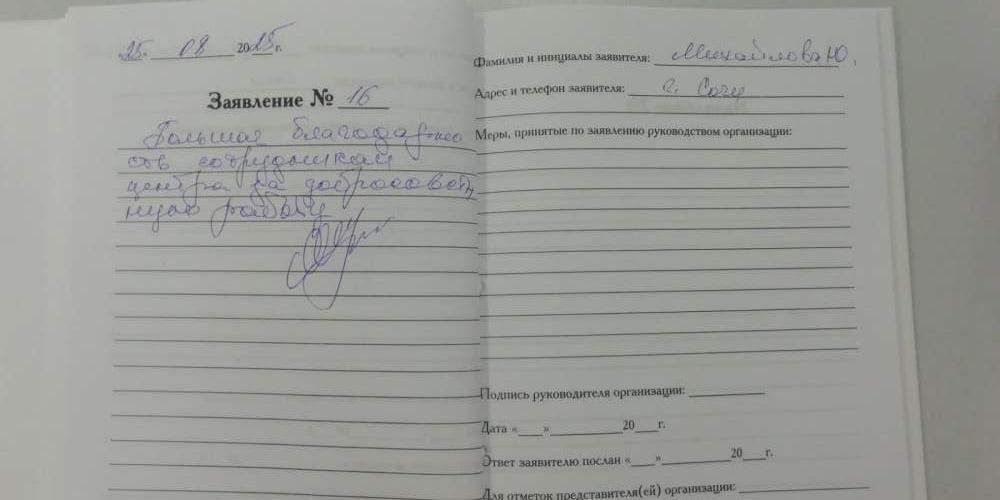 25. 08 2015г.
Заявление № 16
Большая благодарно
сть сотрудникам
центра за добросовест
ную работу
Фамилия и инициалы заявителя: Михайлова Ю.
Адрес и телефон заявителя: г. Сочи
Меры, принятые по заявлению руководством организации:
Подпись руководителя организации: ________
Дата «___»________20___г.
Ответ заявителю послан «___»________20___г.
Для отметок представителя(ей) организации: ________